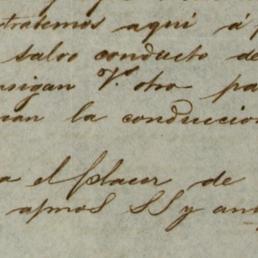 tratemos aqui á p
salvo conducto de
nsigan V. otro pa
ran la conduccion
a el placer de
apmos SS y am